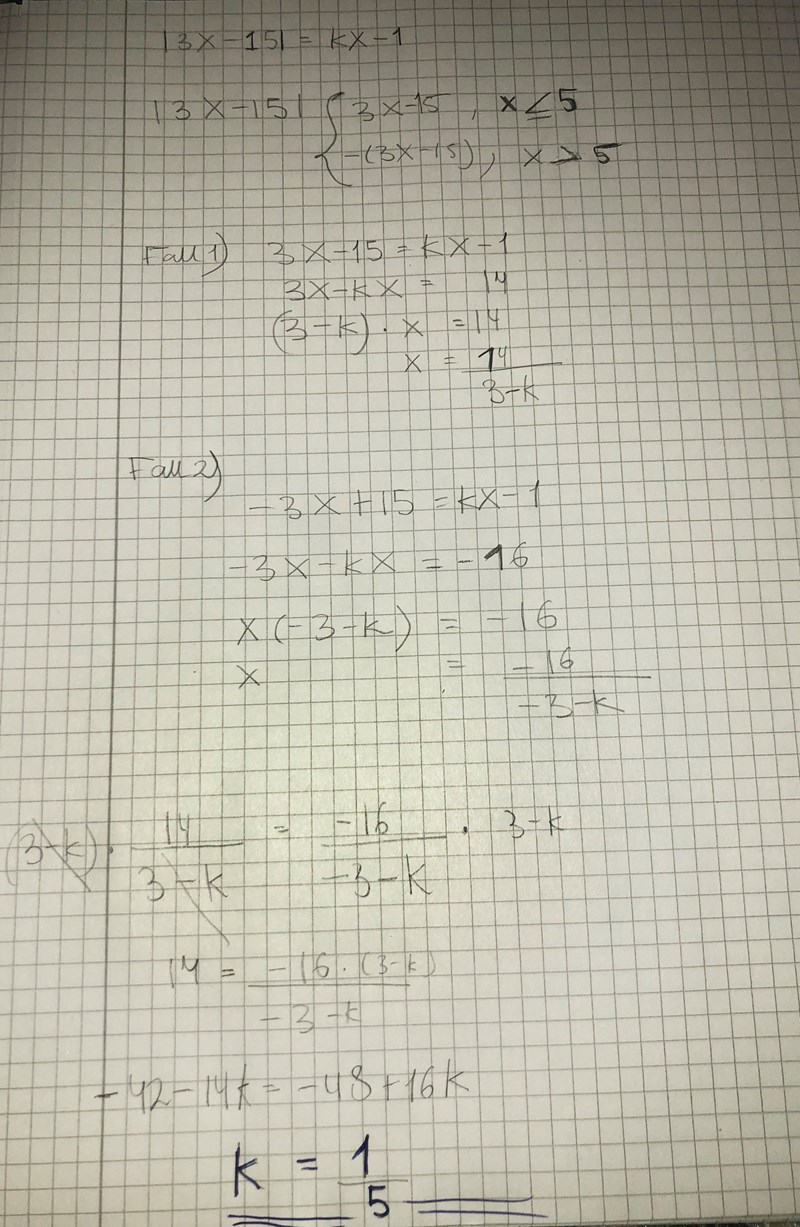 |3x-15| = kx-1
|3x-15| { 3x-15 , x ≤ 5
-(3x-15), x > 5
Fall 1) 3x-15 = kx-1
3x-kx = 14
(3-k) · x = 14
x = 14/(3-k)
Fall 2)
-3x+15 = kx-1
-3x-kx = -16
x(-3-k) = -16
x = -16/(-3-k)
(3-k) · 14/(3-k) = -16/(-3-k) · 3-k
14 = -16·(3-k)/(-3-k)
-42-14k = -48+16k
k = 1/5